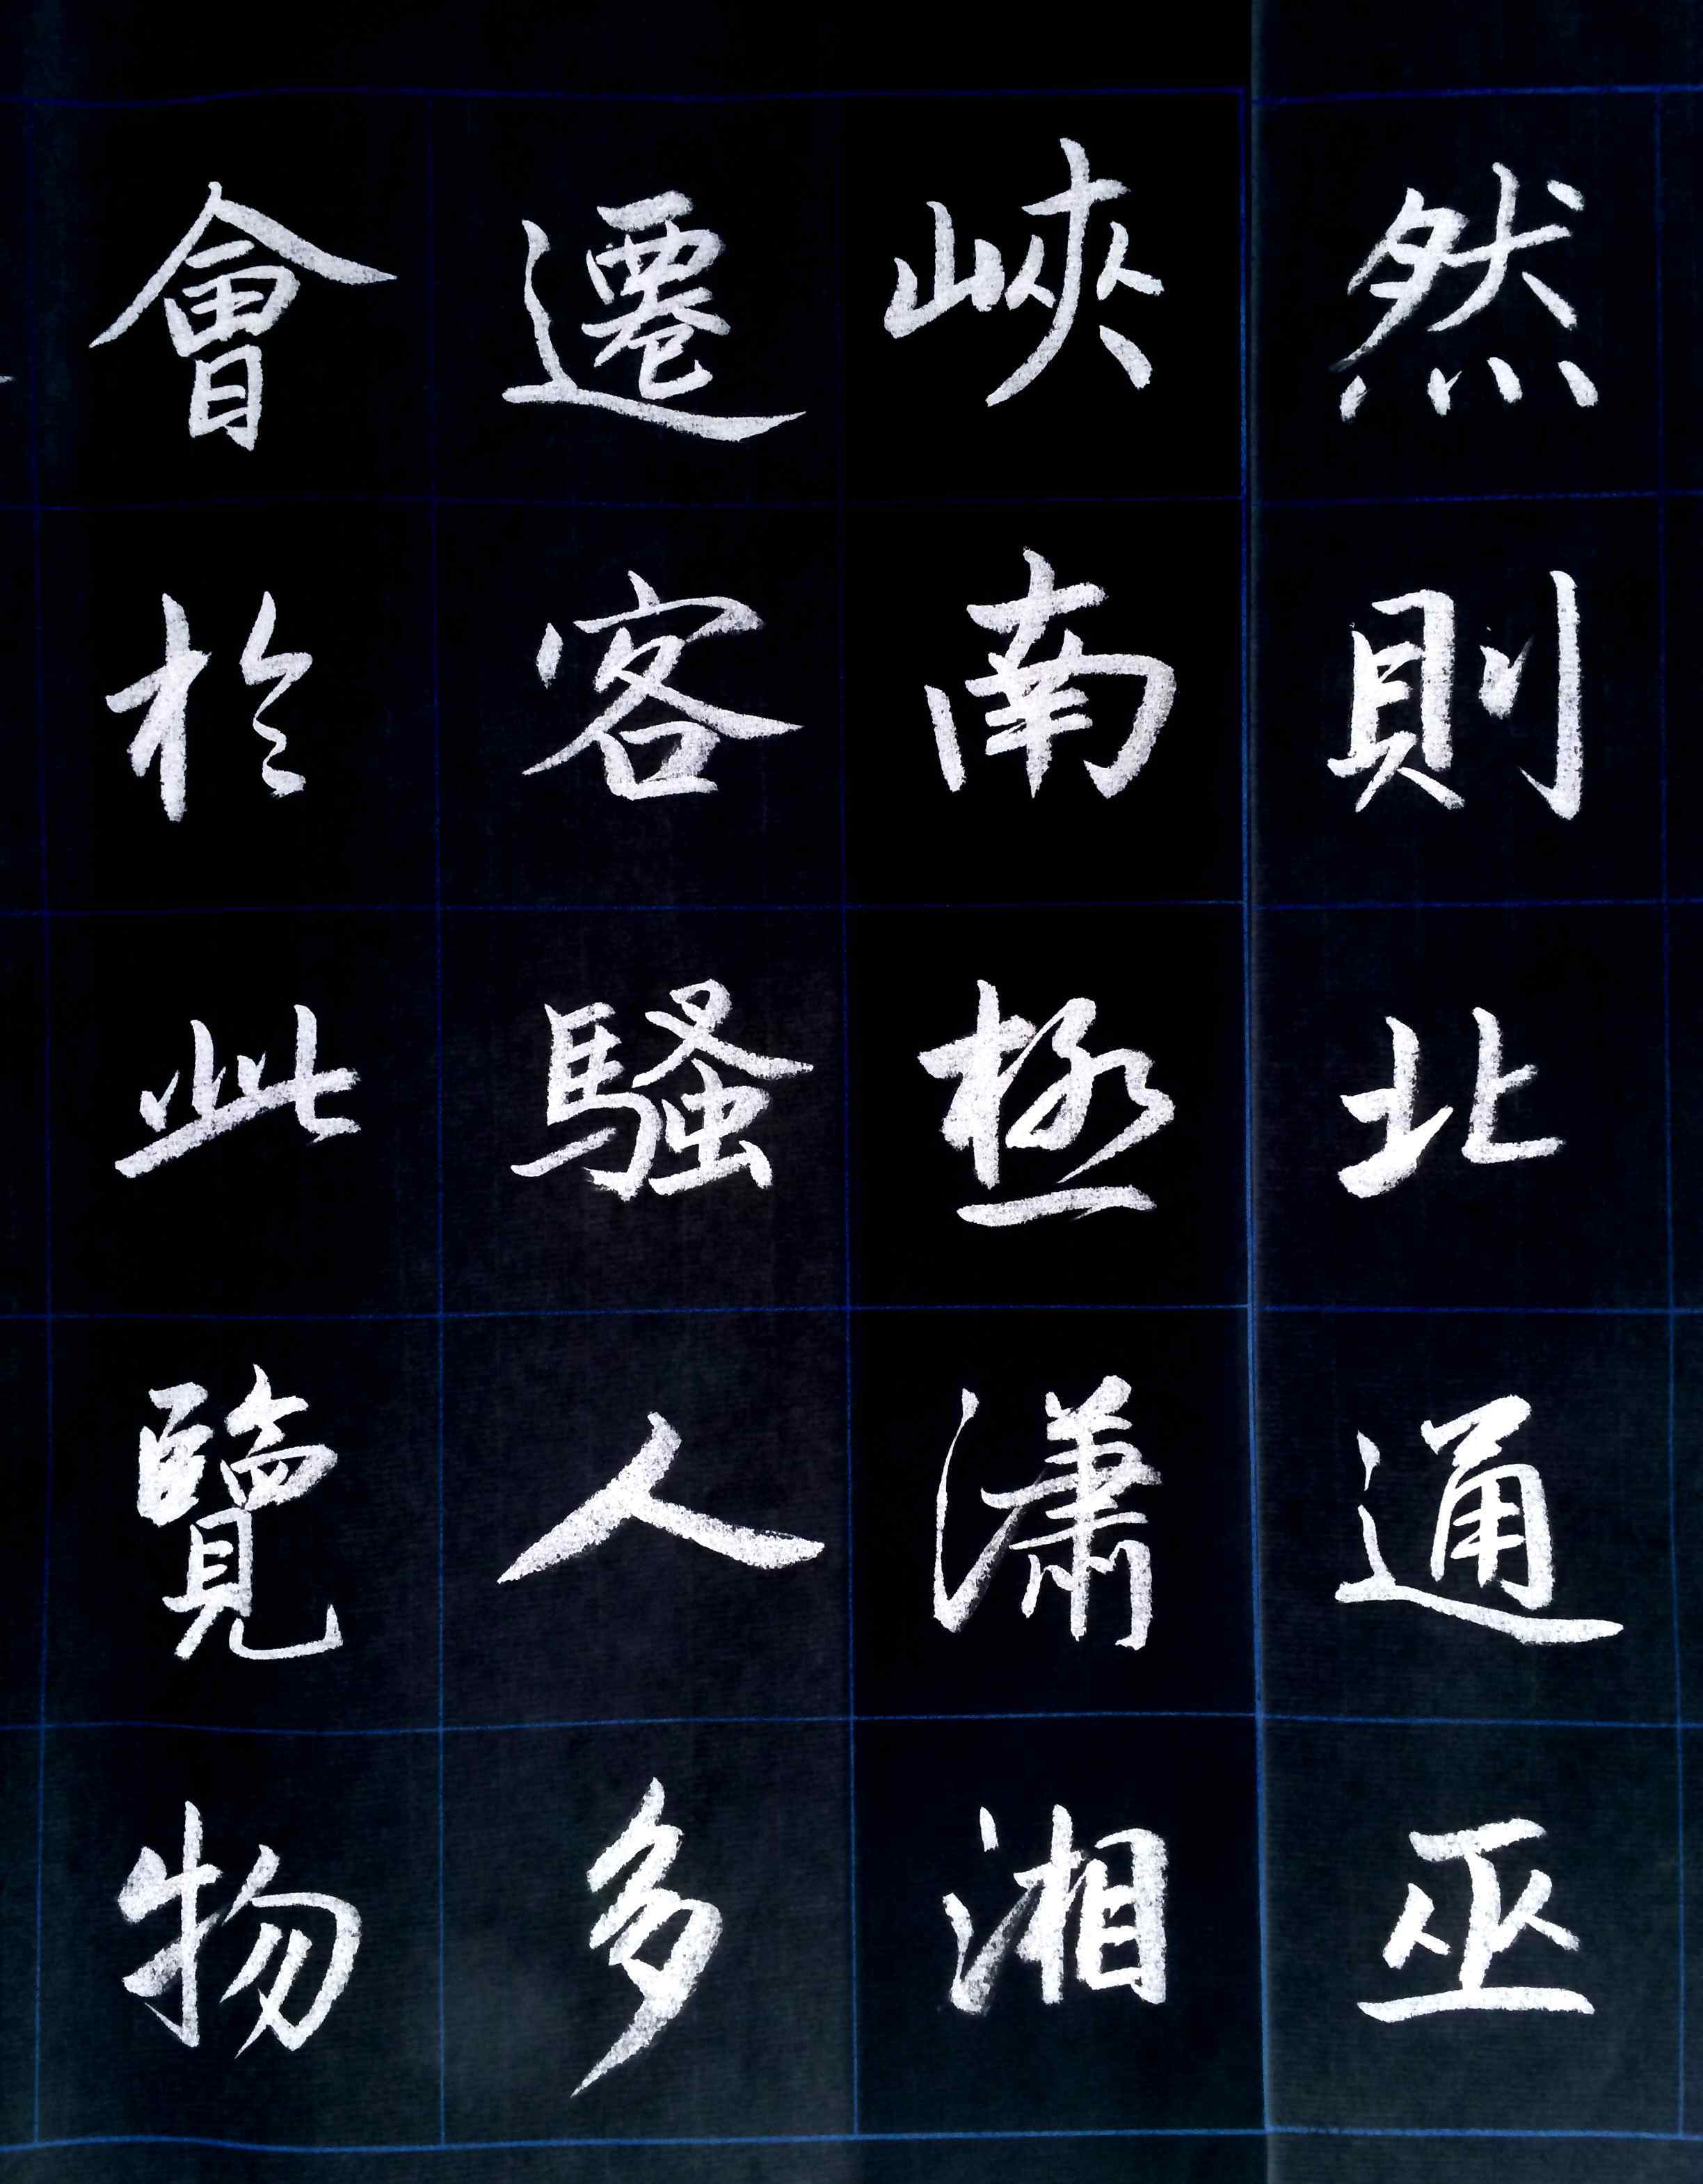 然則北通巫
峽南極潇湘
遷客騷人多
會於此覽物